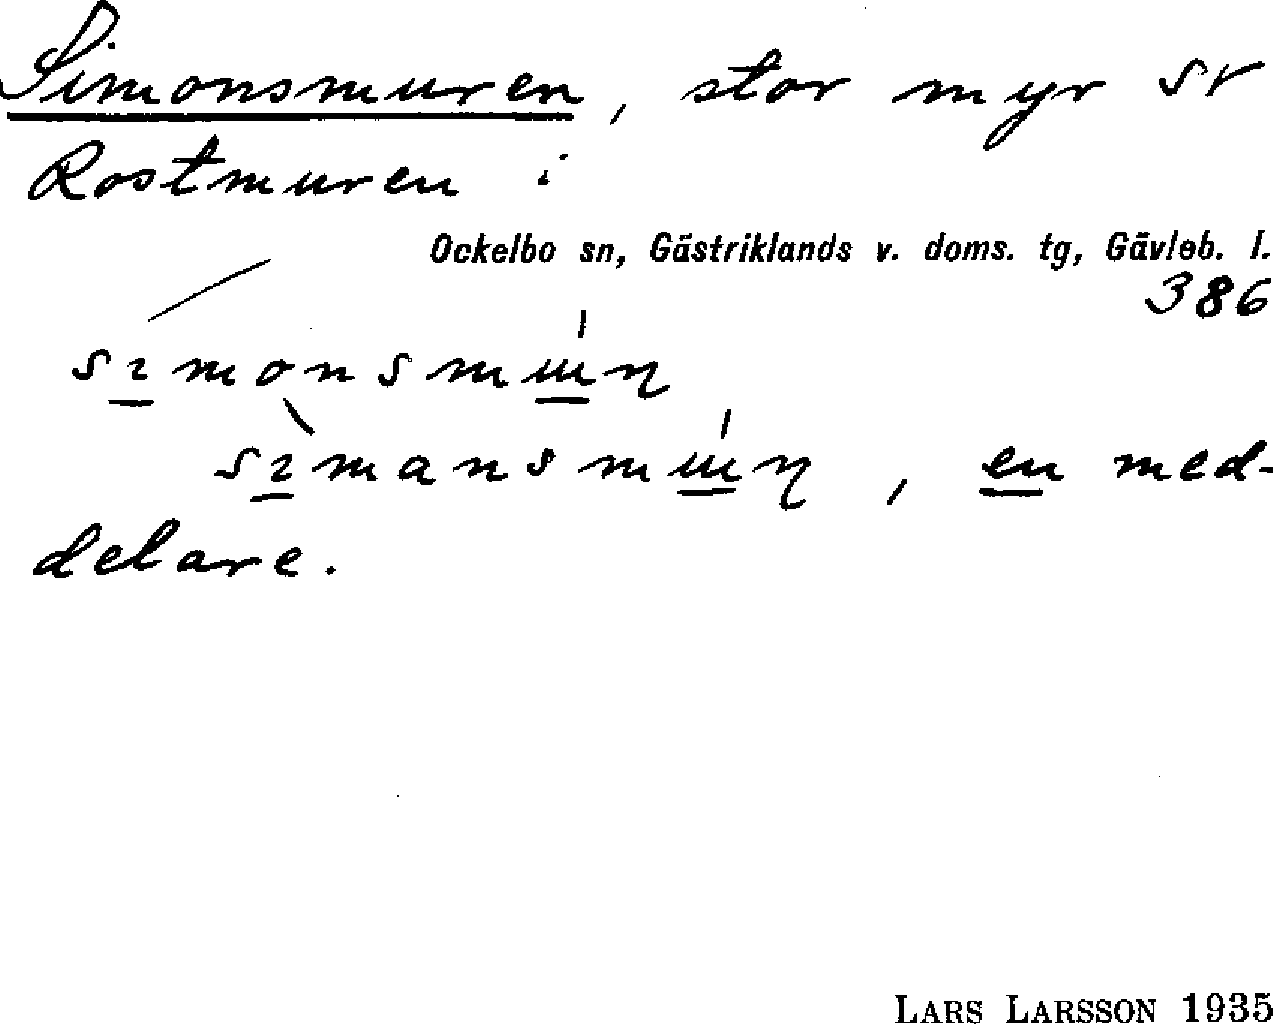 Simonsmuren, stor myr sv
Rostmuren i
Ockelbo sn, Gästriklands v. doms. tg, Gävleb. l.
386
med-
delare.
LARS LARSSON 1935